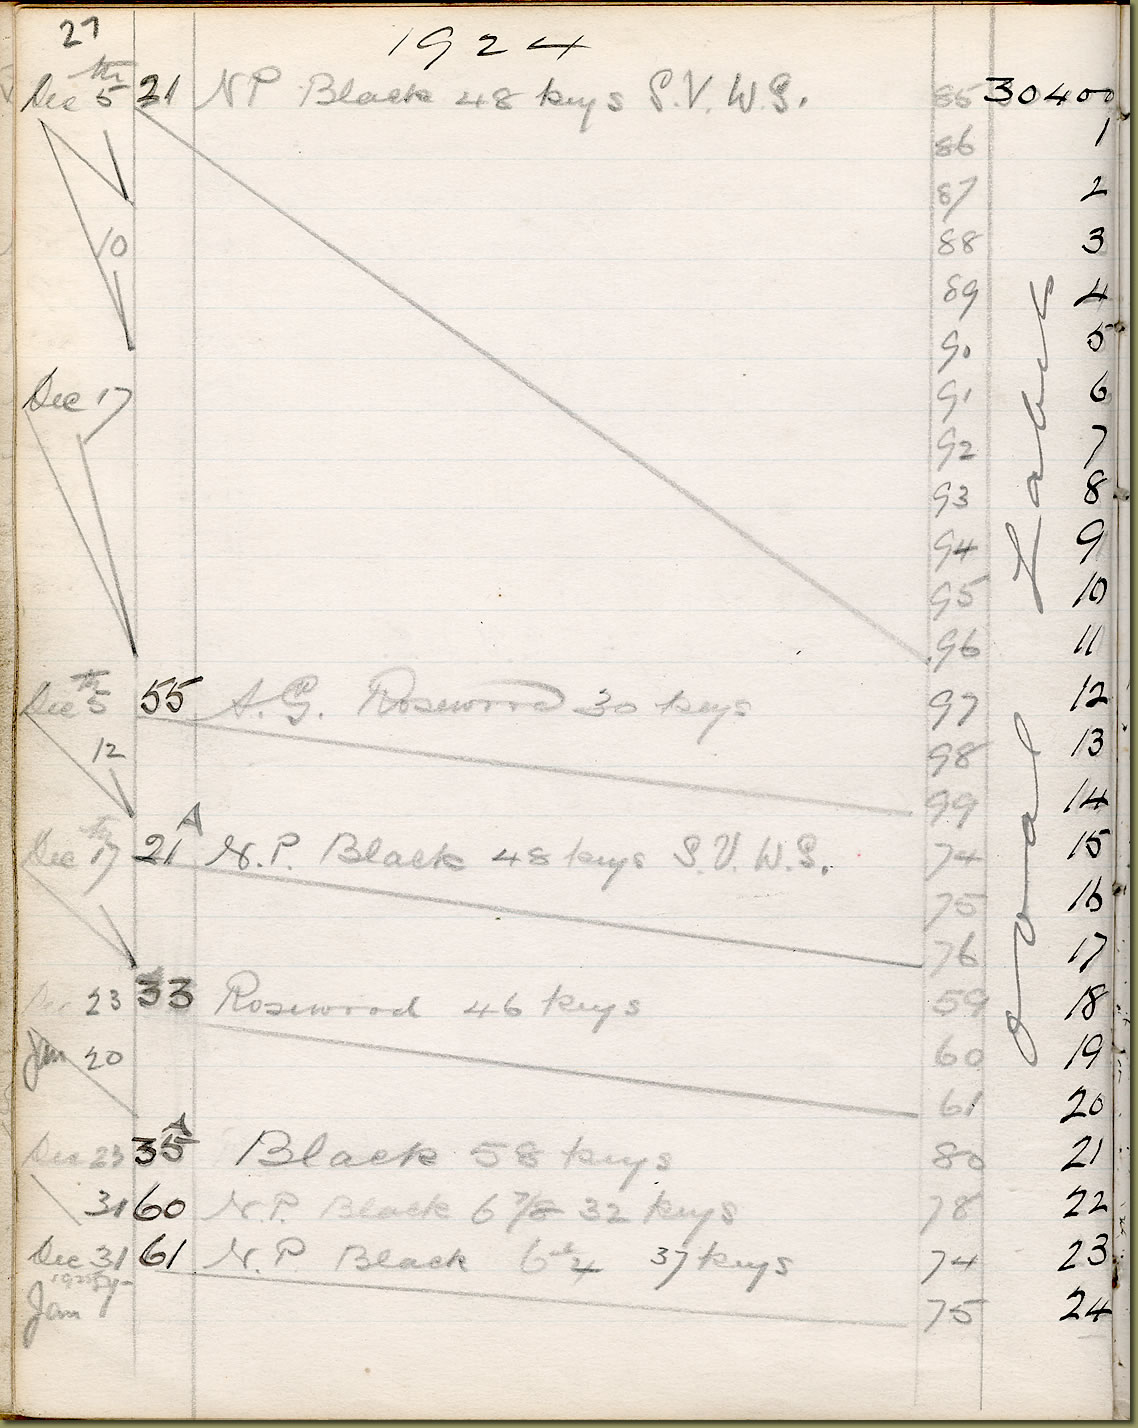 27
1924
Dec 5th 21 NP Black 48 keys S.V. W.S. 85 30400
86 1
87 2
10 88 3
89 4
90 5
Dec 17 91 6
92 7
93 8
94 9
95 10
96 11
Dec 5th 55 A.G. Rosewood 30 keys 97 12
12 98 13
99 14
Dec 17th 21A N.P. Black 48 keys S.V. W.S. 74 15
75 16
76 17
23 33 Rosewood 46 keys 59 18
Jan 20 60 19
61 20
Dec 23 35A Black 58 keys 80 21
31 60 N.P. Black 6 7/8 32 keys 78 22
Dec 31 61 N.P Black 6 37 keys 74 23
Jan 75 24
oval Label